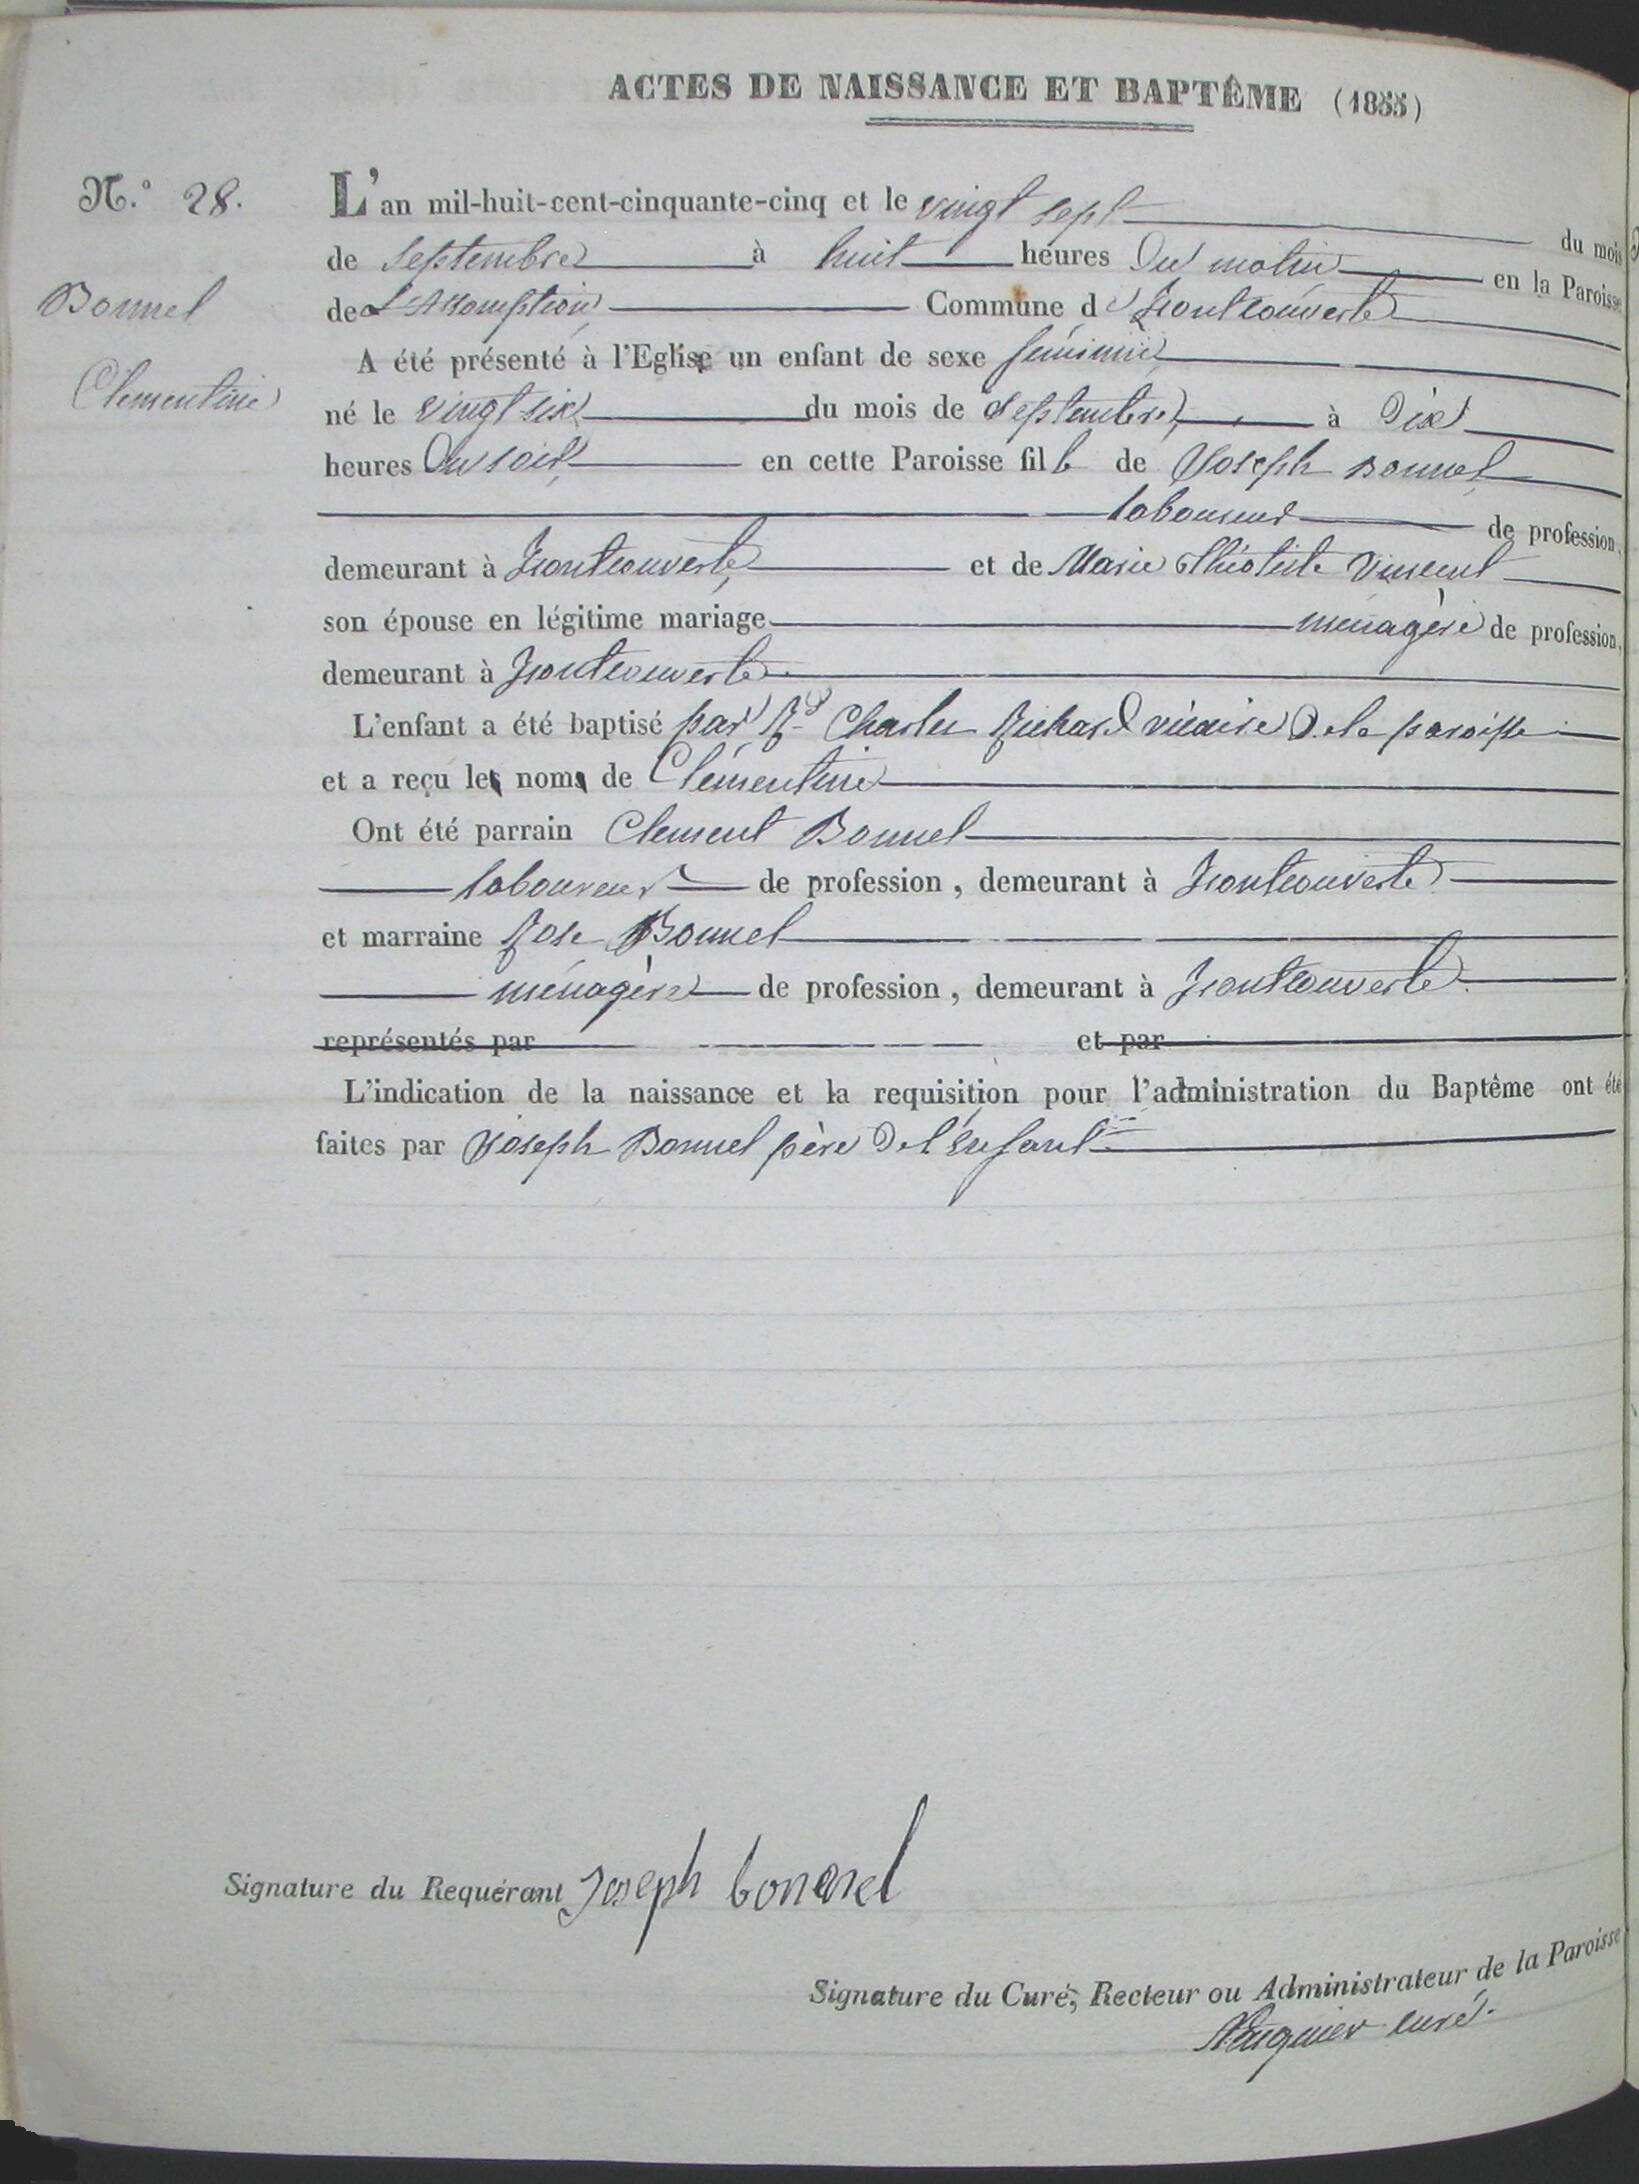 ACTES DE NAISSANCE ET BAPTÊME (1855)
N.° 28.
L'an mil-huit-cent-cinquante-cinq et le vingt sept du mois
de Septembre à huit heures Du matin en la Paroisse
Bonnel
de L'Assomption Commune d
A été présenté à l'Eglise un enfant de sexe féminin
Clementine
né le vingt six du mois de Septembre à Dix
heures Du soir en cette Paroisse fille de Joseph Bonnel
laboureur de profession,
demeurant à et de Marie Théotiste Vincent
son épouse en légitime mariage ménagère de profession,
demeurant à
L'enfant a été baptisé par Rd Charles Richard vicaire De la paroisse
et a reçu le nom de Clémentine
Ont été parrain Clement Bonnel
laboureur de profession, demeurant à
et marraine Rose Bonnel
ménagère de profession, demeurant à
représentés par et par
L'indication de la naissance et la requisition pour l'administration du Baptême ont été
faites par Joseph Bonnel père De l'Enfant
Signature du Requérant Joseph bonnel
Signature du Curé, Recteur ou Administrateur de la Paroisse
curé.